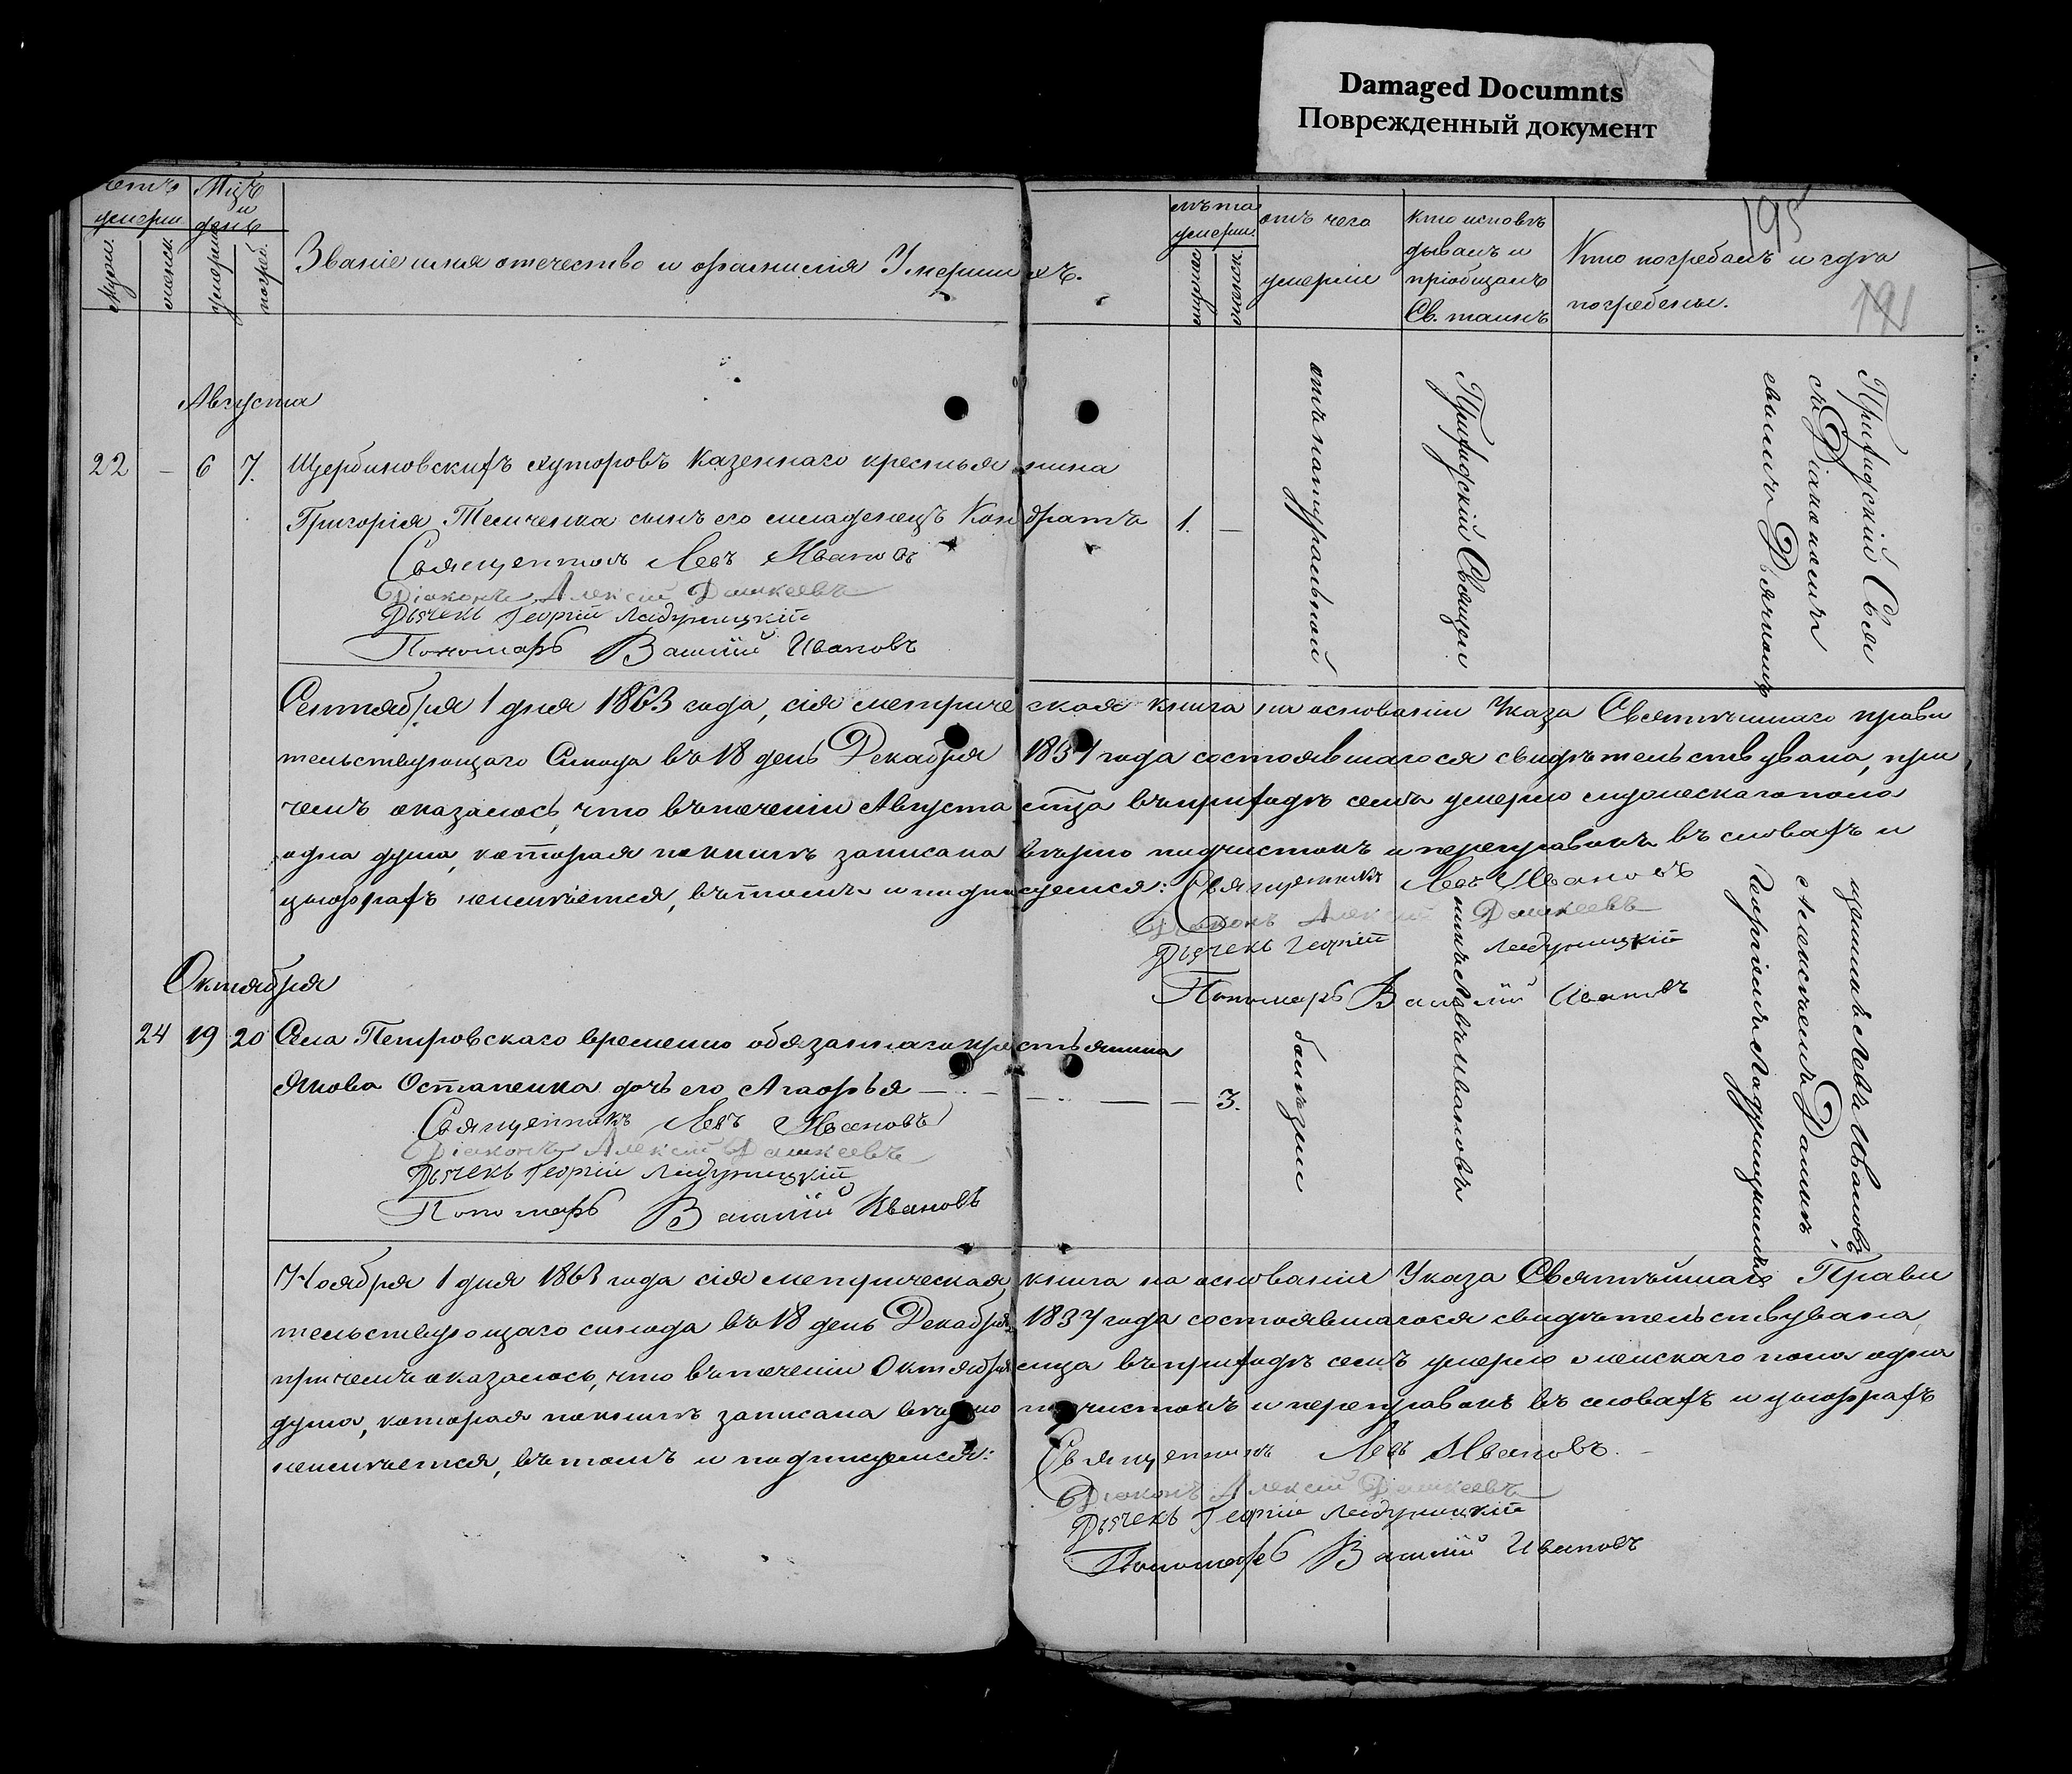 Damaged Documnts
Поврежденный документ
195
191
умерш.
Мцъ
и
день
Званіе имя отечество и фамилія Умершихъ.
лѣта
умерш.
отъ чего
умерли
кто исповѣ
дывалъ и
пріобщалъ
Св. таинъ
Кто погребалъ и гдѣ
погребены.
Августа
22 – 6 7. Щербиновскихъ хуторовъ казеннаго крестьянина
Григорія Теличенка сынъ его младенецъ Кондратъ 1. –
отъ натуральной
Приходскій Священ
Приходскій Свя
съ Діакономъ
Дьячкомъ
Священникъ Левъ Ивановъ
Діаконъ Алексій Дашкеевъ
Дьячекъ Георгій Ладужицкій
Пономарь Василій Ивановъ
Сентября 1 дня 1863 года, сія метрическая книга на основаніи Указа Святѣйшаго прави
тельствующаго Синода въ 18 день Декабря 1837 года состоявшагося свидѣтельствувана, при
чемъ оказалось, что въ теченіи Августа мца въ приходѣ семъ умерло мужескаго пола
одна душа, которая по книгѣ записана вѣрно подчистокъ и переправокъ въ словахъ и
цыфрахъ неимѣется, въ томъ и подписуемся: Священникъ Левъ Ивановъ
Діаконъ Алексій Дашкеевъ
Дьячекъ Георгій Ладужицкій
Пономарь Василій Ивановъ
Октября
24 19 20 Села Петровскаго временно обязаннаго крестьянина
Якова Остапенка дочь его Агафья – 3.
болѣзни
никъ Левъ Ивановъ
щенникъ Левъ Ивановъ,
Алексѣемъ Дашкѣ
Георгіемъ Ладужицкимъ
Священникъ Левъ Ивановъ
Діаконъ Алексій Дашкеевъ
Дьячекъ Георгій Ладужицкій
Пономарь Василій Ивановъ
Ноября 1 дня 1863 года сія метрическая книга на основаніи Указа Святѣйшаго Прави
тельствующаго синода въ 18 день Декабря 1837 года состоявшагося свидѣтельствувана
при чемъ оказалось, что въ теченіи Октября мца въ приходѣ семъ умерло женскаго пола одна
душа, которая по книгѣ записана вѣрно подчистокъ и переправокъ въ словахъ и цыфрахъ
неимѣется, въ томъ и подписуемся:
Священникъ Левъ Ивановъ.
Діаконъ Алексій Дашкеевъ
Дьячекъ Георгій Ладужицкій
Пономарь Василій Ивановъ